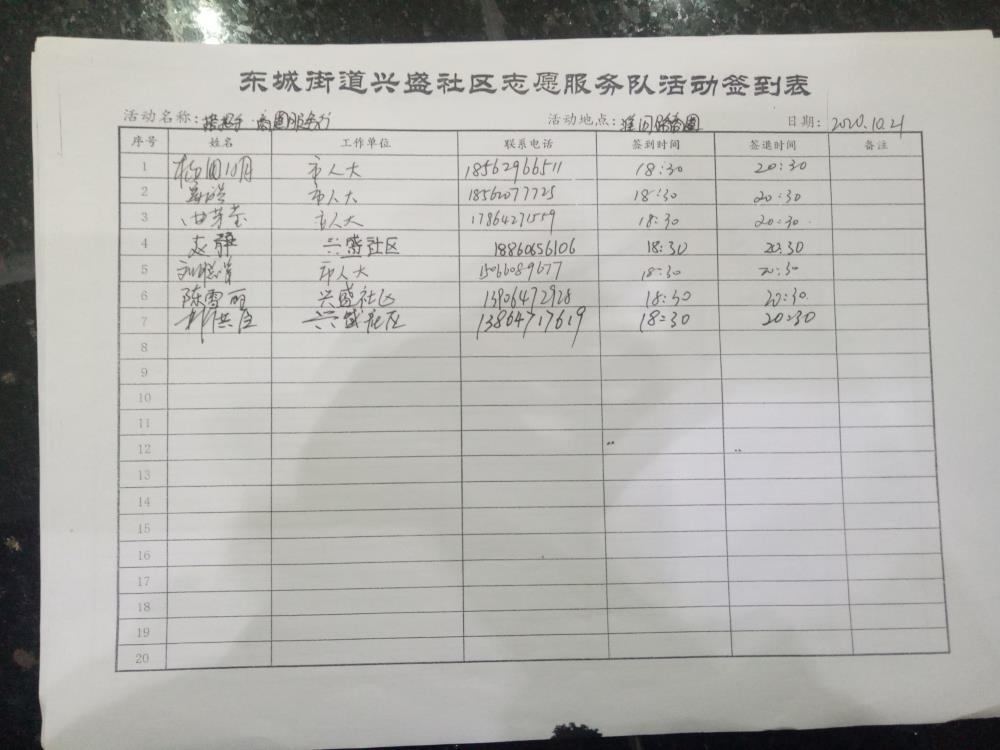 东城街道兴盛社区志愿服务队活动签到表
活动名称: 商圈服务行 活动地点: 商圈 日期: 2020.10.21
序号 姓名 工作单位 联系电话 签到时间 签退时间 备注
1 市人大 18562966511 18:30 20:30
2 市人大 18562077725 18:30 20:30
3 市人大 17864271559 18:30 20:30
4 赵静 兴盛社区 18860656106 18:30 20:30
5 市人大 15066089677 18:30 20:30
6 陈雪丽 兴盛社区 13906472928 18:30 20:30
7 兴盛社区 13864717619 18:30 20:30
8
9
10
11
12
13
14
15
16
17
18
19
20